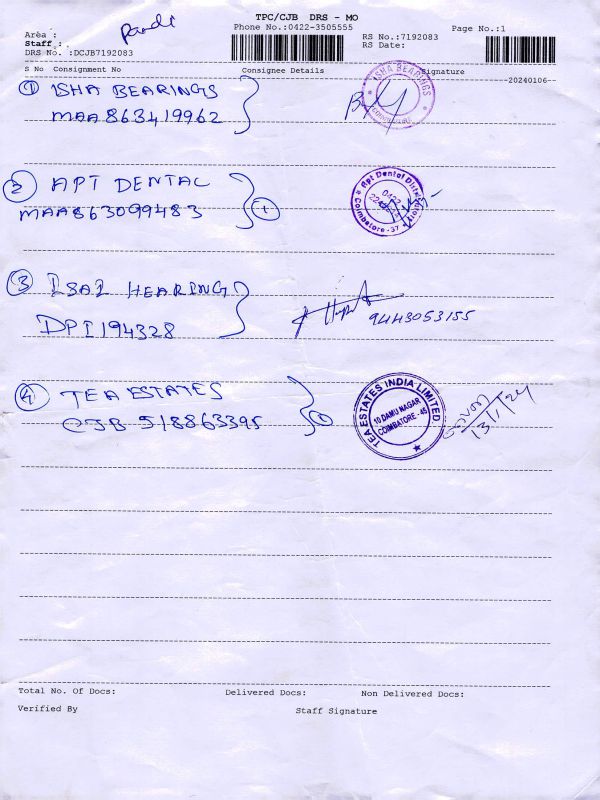 TPC/CJB DRS - MO
Phone No.:0422-3505555
Page No.:1
Area :
RS No.:7192083
Staff :
RS Date:
DRS No. :DCJB7192083
S No Consignment No Consignee Details Signature
20240106
① ISHA BEARINGS
MAA863419962
ISHA BEARINGS
② APT DENTAL
MAA863099483 ①
Apt Dental Division
0422
Coimbatore - 37
③ ISAI HEARING
DPI194328
9443053155
④ TEA ESTATES
CJB 518863395 ①
TEA ESTATES INDIA LIMITED
10 DAMU NAGAR
COIMBATORE - 45
13/1/24
Total No. Of Docs: Delivered Docs: Non Delivered Docs:
Verified By Staff Signature